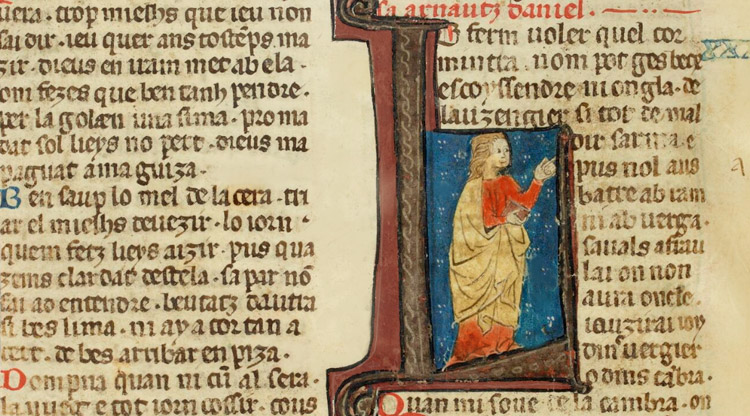 uera · trop mielhs que ieu non
sai dir · ieu quer ans tostẽps ma
zir · dieus en uam met ab ela ·
om fezes que ben tanh pendre ·
per la golaen una sima · pro ma
dat sol lieys no pert · dieus ma
paguat a ma guiza ·
Ben saup lo mel de la cera · tri
ar el mielhs deuezir · lo iorn
quem fetz lieys aizir · pus qua
zems clardat destela · sa par nõ
fai ad entendre · beutatz dautra
si bes lima · ni ay a cor tan a
de bes arribar en piza ·
Dompna quan ni cũ al sera ·
la nueit e tot iorn cossir · cous
sa arnautz daniel ·
Lo ferm uoler quel cor
mintra · nom pot ges becx
escoyssendre ni ongla · de
lauzengier si tot de mal
dir sarma · e
pus nol aus
batre ab ram
ni ab uerga ·
sauals a frau
lai on non
aura oncle ·
iauzirai ioy
dinz uergier
o dins cãbra ·
Quan mi soue de la cambra · on